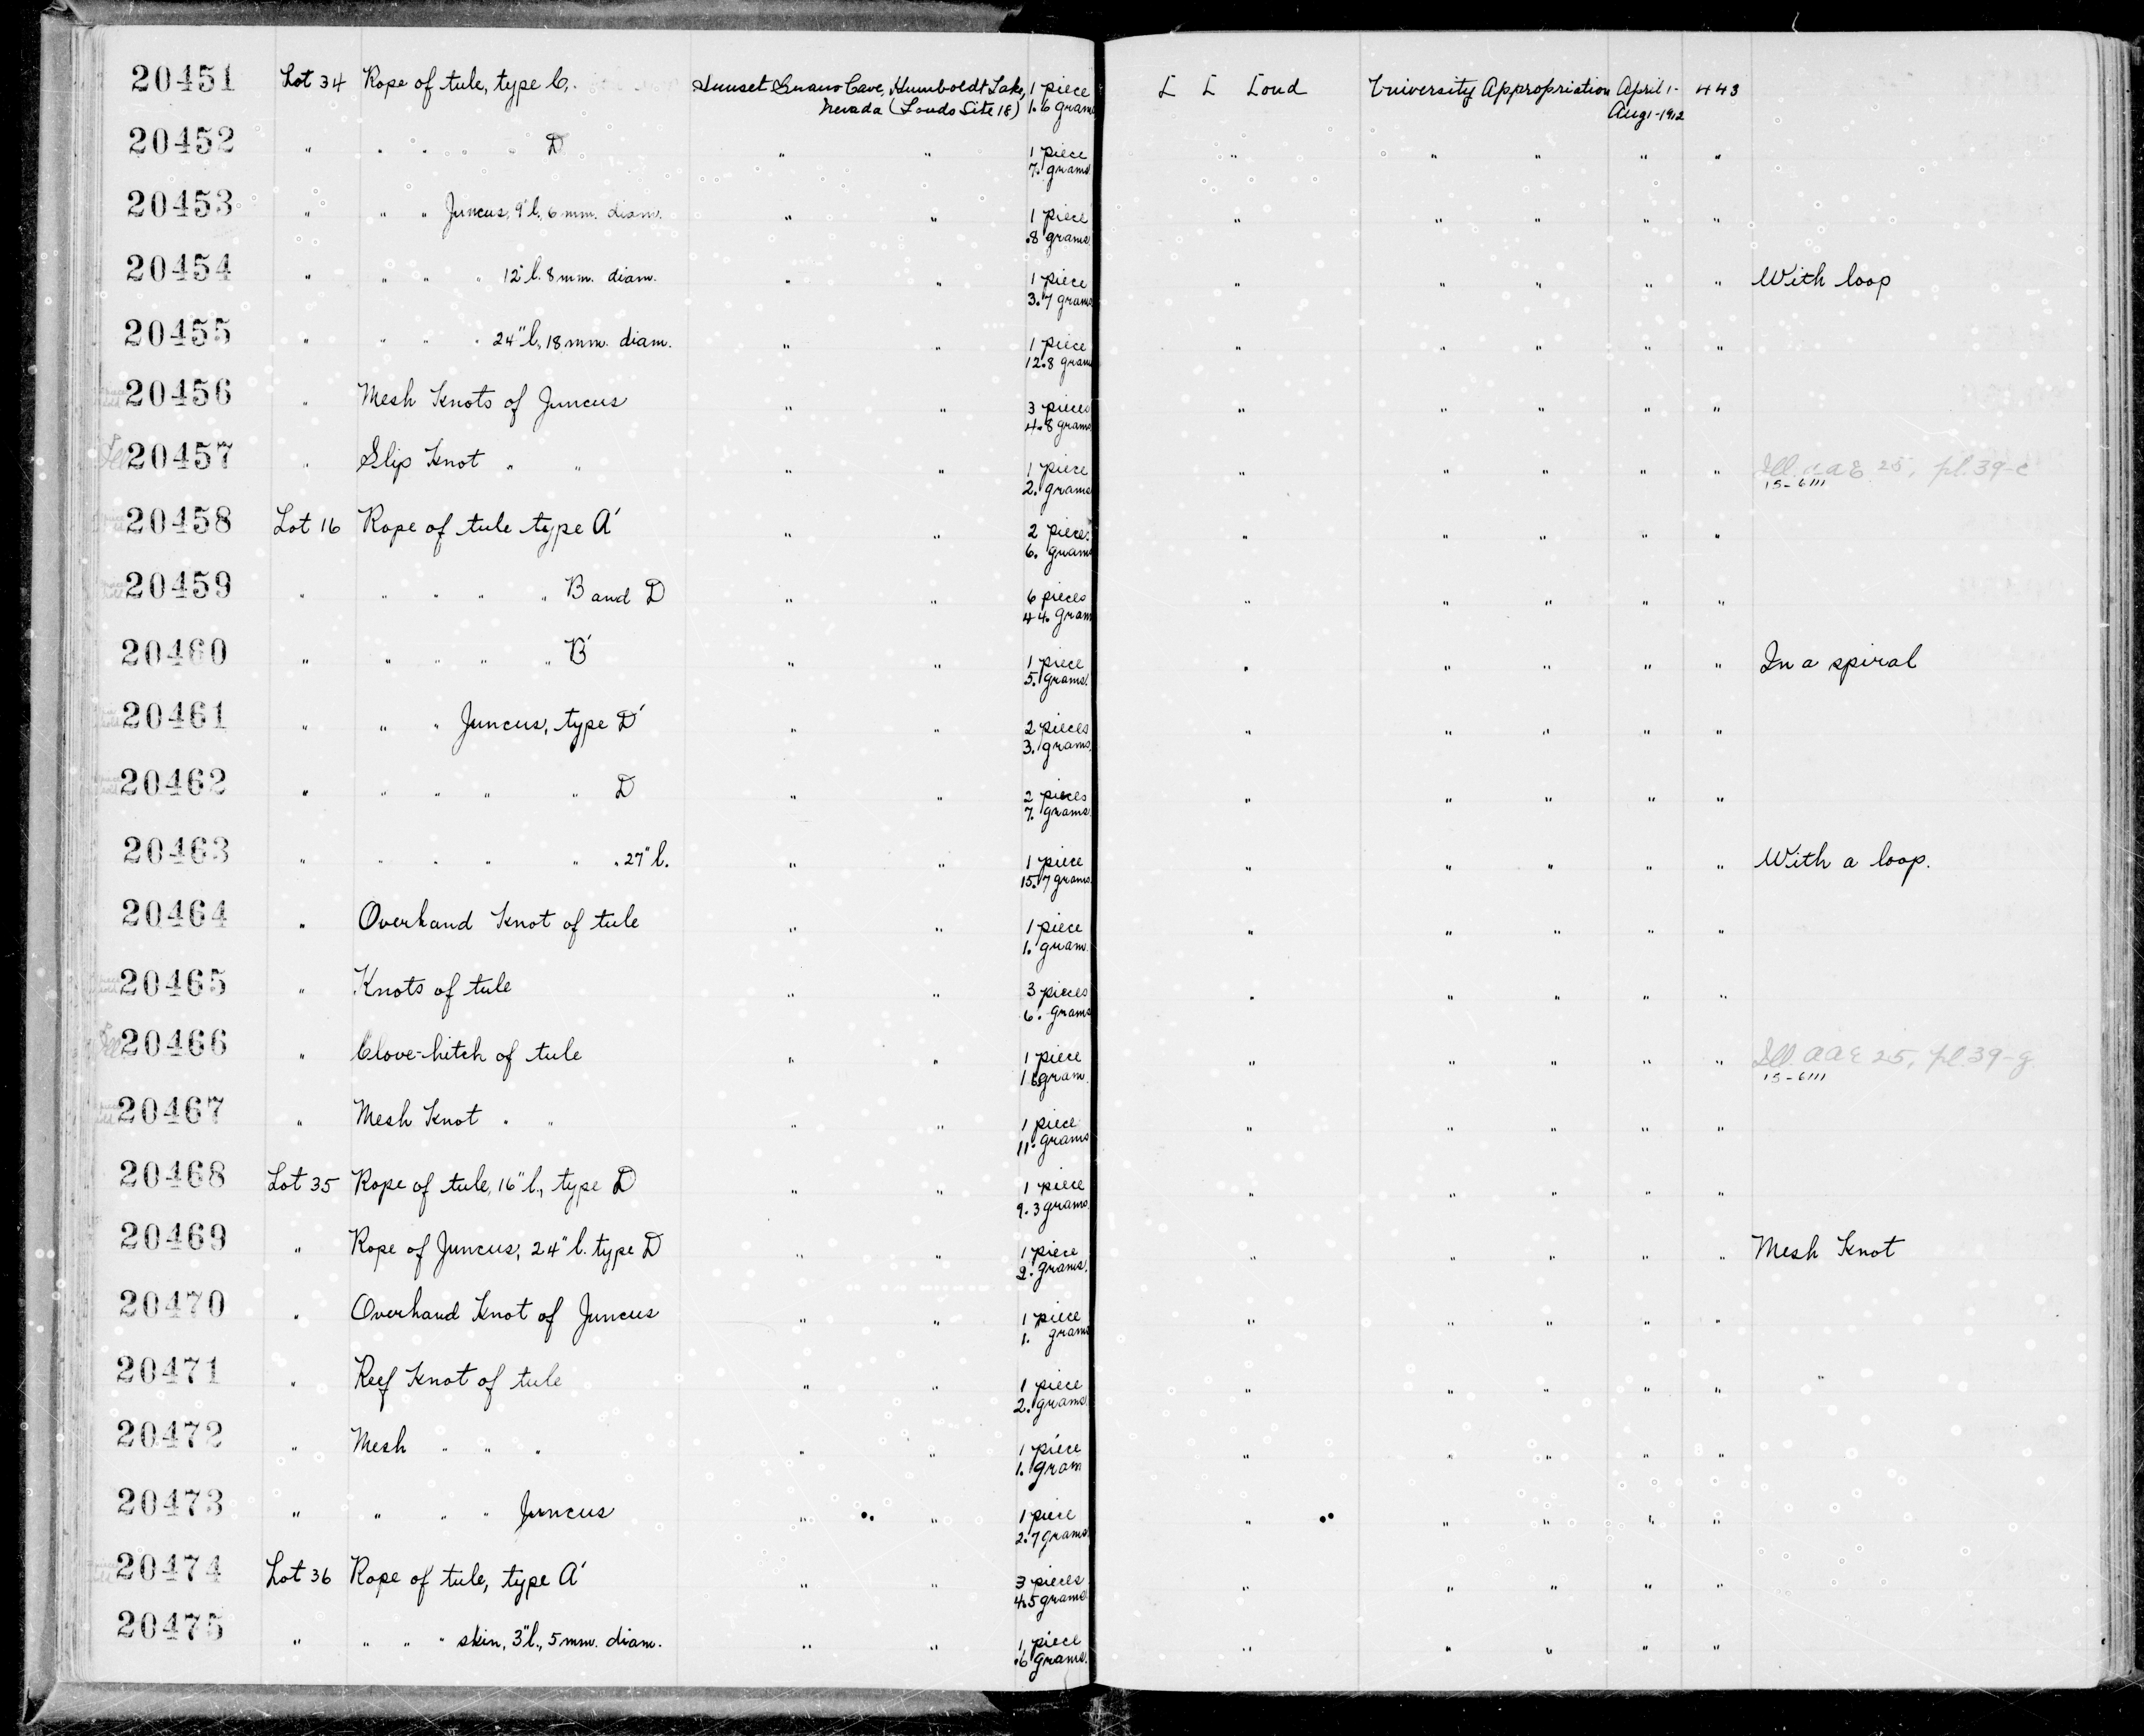 20451 Lot 34 Rope of tule, type C. Sunset Guano Cave, Humboldt Lake, 1 piece L L Loud University Appropriation April 1- 443
Nevada (Louds Site 18) 1.6 grams Aug 1-1912
20452 " " " " " D " " 1 piece " " " " "
7. grams
20453 " " " Juncus, 9"l, 6 mm. diam. " " 1 piece " " " " "
.8 grams
20454 " " " " 12"l. 8 mm. diam. " " 1 piece " " " " " With loop
3.7 grams
20455 " " " " 24"l, 18 mm. diam. " " 1 piece " " " " "
12.8 grams
20456 " Mesh Knots of Juncus " " 3 pieces " " " " "
4.8 grams
20457 " Slip Knot " " " " 1 piece " " " " " Ill. U a E 25, pl. 39-c
2. grams 15-6111
20458 Lot 16 Rope of tule type A' " " 2 pieces " " " " "
6. grams
20459 " " " " " B and D " " 6 pieces " " " " "
44. gram
20460 " " " " " B' " " 1 piece " " " " " In a spiral
5. grams.
20461 " " " Juncus, type D' " " 2 pieces " " " " "
3. grams.
20462 " " " " " D " " 2 pieces " " " " "
7. grams
20463 " " " " " " 27"l. " " 1 piece " " " " " With a loop.
15.7 grams
20464 " Overhand Knot of tule " " 1 piece " " " " "
1. gram.
20465 " Knots of tule " " 3 pieces " " " " "
6. grams
20466 " Clove-hitch of tule " " 1 piece " " " " " Ill. a a E 25, pl. 39-g
gram. 15-6111
20467 " Mesh Knot " " " " 1 piece " " " " "
11. grams
20468 Lot 35 Rope of tule, 16"l., type D " " 1 piece " " " " "
9.3 grams.
20469 " Rope of Juncus, 24"l. type D " " 1 piece " " " " " Mesh Knot
2. grams.
20470 " Overhand Knot of Juncus " " 1 piece " " " " "
1. grams
20471 " Reef Knot of tule " " 1 piece " " " " "
2. grams.
20472 " Mesh " " " " " 1 piece " " " " "
1. gram
20473 " " " " Juncus " " 1 piece " " " " "
2.7 grams
20474 Lot 36 Rope of tule, type A' " " 3 pieces " " " " "
4.5 grams
20475 " " " " skin, 3"l., 5 mm. diam. " " 1 piece " " " " "
.6 grams.